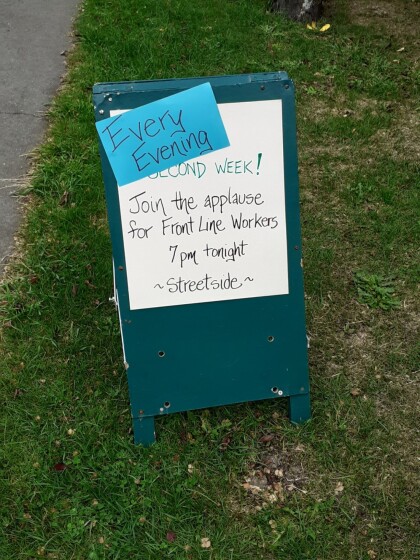 Every
Evening
SECOND WEEK!
Join the applause
for Front Line Workers
7pm tonight
~Streetside~